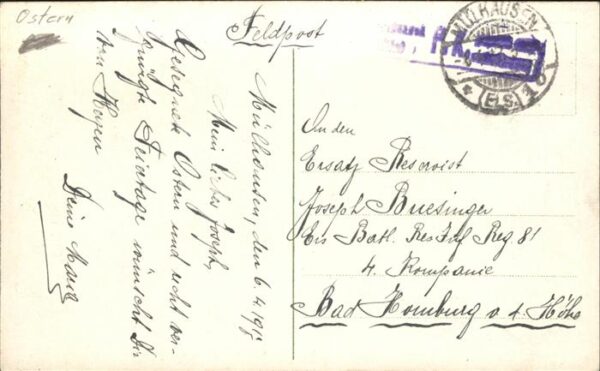 Ostern
Feldpost
MÜLHAUSEN
(ELS.)
Mülhausen, den 6.4.1915
Mein lieber Joseph,
Gesegnete Ostern und recht ver-
gnügte Feiertage wünscht Dir
von Herzen
Deine
An den
Ersatz Reservist
Joseph Buesinger
Ers Batl. Res Inf Reg 81
4. Kompanie
Bad Homburg v. d. Höhe